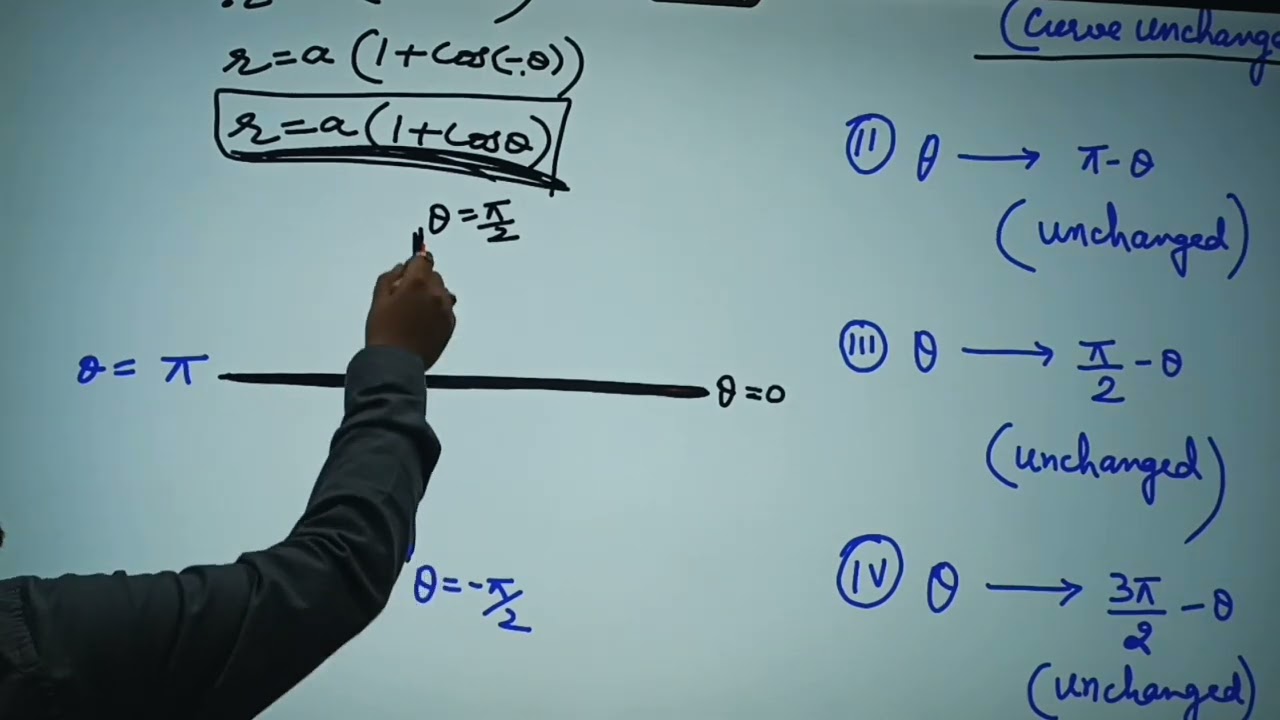 r=a(1+cos(-θ))
r=a(1+cosθ)
θ=π/2
θ= π
θ=0
θ=-π/2
(Curve unchange
II θ → π-θ
(unchanged)
III θ → π/2 -θ
(unchanged)
IV θ → 3π/2 -θ
(unchanged)